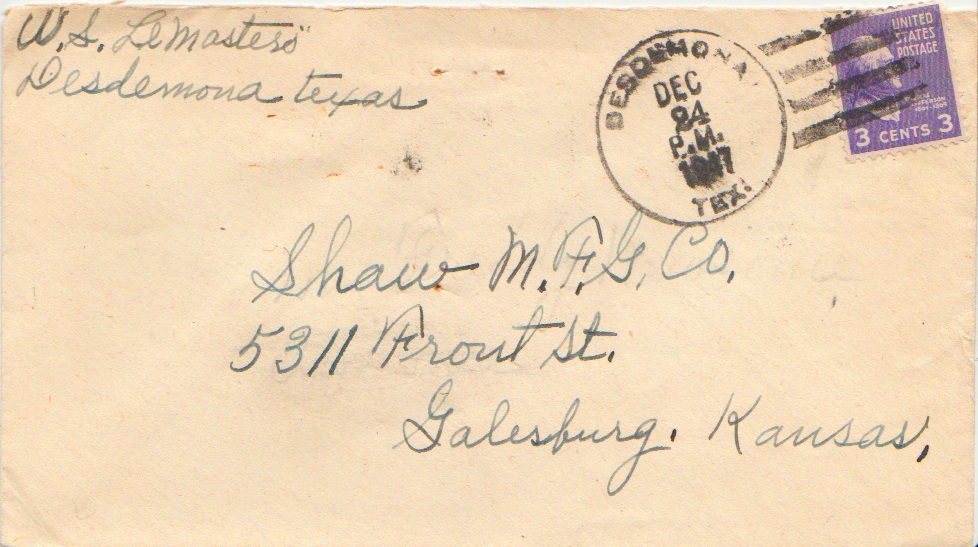 W. S. LeMasters
Desdemona texas
DESDEMONA
DEC
24
P.M.
1947
TEX.
UNITED
STATES
POSTAGE
3 CENTS 3
Shaw M.F.G. Co.
5311 Front St.
Galesburg. Kansas,